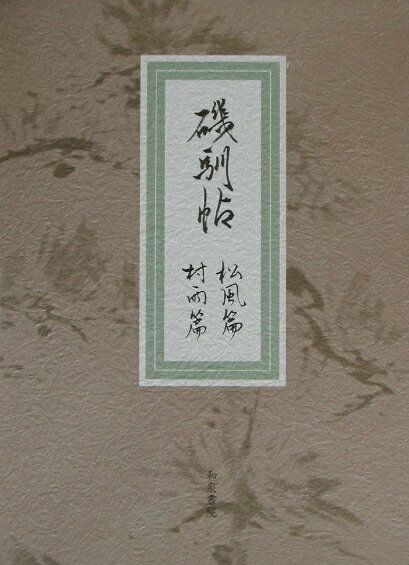 磯馴帖
松風篇
村雨篇
和泉書院